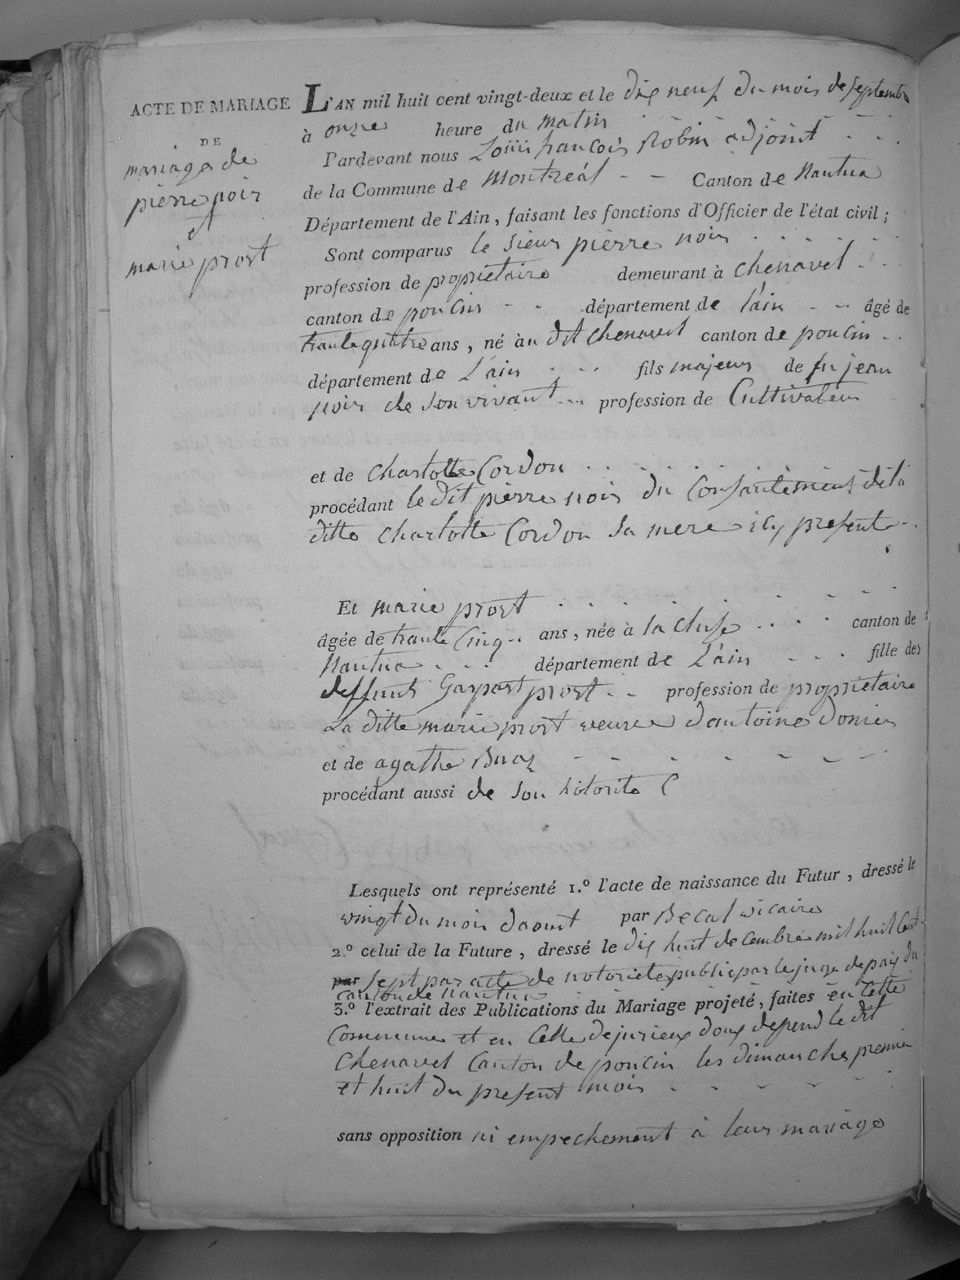 ACTE DE MARIAGE
DE
mariage de
pierre noir
et
marie prost
L'AN mil huit cent vingt-deux et le dix neuf du mois de septembre
à onze heure du matin
Pardevant nous Louis francois Robin adjoint
de la Commune de Montréal Canton de Nantua
Département de l'Ain, faisant les fonctions d'Officier de l'état civil;
Sont comparus le sieur pierre noir
profession de propriétaire demeurant à chenavel
canton de poncin département de l'ain âgé de
trante quttre ans, né au dit chenavel canton de poncin
département de L'ain fils majeur de fu jean
noir de son vivant profession de Cultivateur
et de charlotte Cordon
procédant le dit pierre noir du Consantement de la
ditte charlotte Cordon sa mere icy presente
Et marie prost
âgée de trante Cinq ans, née à la cluse canton de
Nantua département de L'ain fille des
deffunts Gaspart prost profession de propriétaire
La ditte marie prost veuve d'antoine donier
et de agathe Buaz
procédant aussi de son hotorite
Lesquels ont représenté 1.º l'acte de naissance du Futur, dressé le
vingt du mois daout par Becal vicaire
2.º celui de la Future, dressé le dix huit decembre mil huit Cent
par sept par acte de notoriete public par le juge de paix du
canton de Nantua
3.º l'extrait des Publications du Mariage projeté, faites en Cette
Commune et en Celle de jurieux doux depend le dit
Chenavel Canton de poncin les dimanche premier
et huit du present mois
sans opposition ni empechement à leur mariage